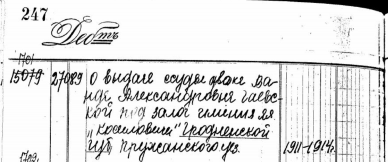 247
Дебтъ
1701
15079 27089 О выдаче ссуды дворянке Ван-
де Александровне Гаевс-
кой под залог имения ея
"Косиловичи" Гродненской
губ Пружанского уез. 1911-1914г.